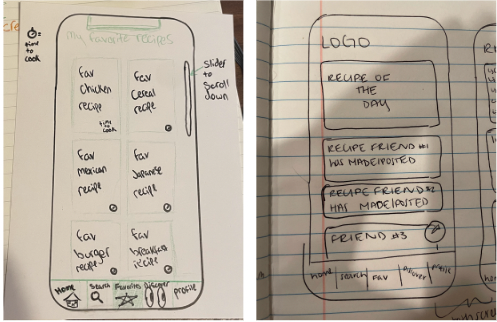 time
to
cook
My favorite recipes
Slider
to
Scroll
down
fav
Chicken
recipe
time
to
cook
fav
Cereal
recipe
fav
mexican
recipe
fav
Japanese
recipe
fav
burger
recipe
fav
breakfast
recipe
Home
Search
Favorites
Discover
profile
LOGO
RECIPE OF
THE
DAY
RECIPE FRIEND #1
HAS MADE/POSTED
RECIPE FRIEND #2
HAS MADE/POSTED
FRIEND #3
Home
Search
Fav